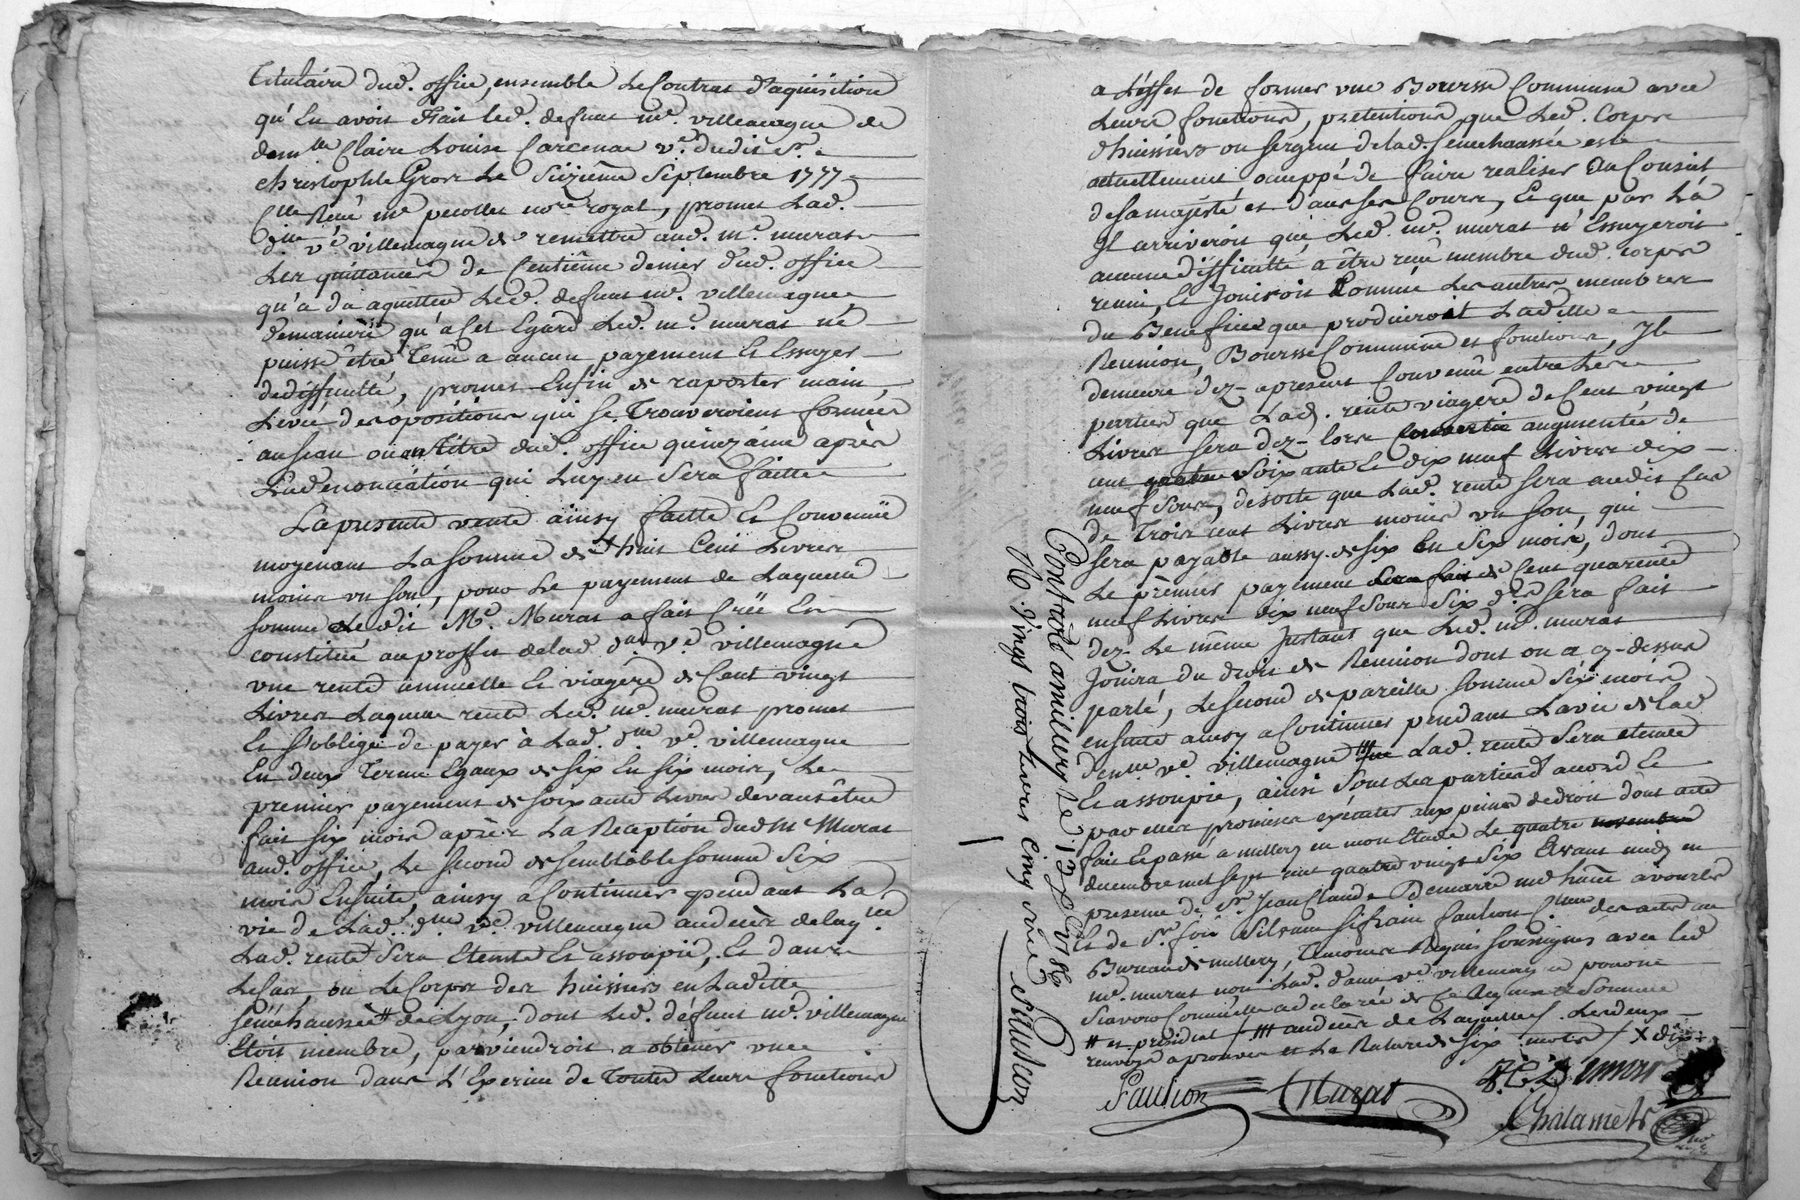 titulaire dud. office, ensemble le Contrat d'aquisition
qu'en avoit fait led. defunt me. villemagne de
demlle Claire Louise Carcenac ve. dudit Sr.
christophle Gros le Sixième Septembre 1777
reçu me not.re royal, promet lad.
d.lle ve. villemagne de remettre aud. me. murat
les quittances de Centième denier dud. office
qu'a du aquitter led. defunt me. villemagne
demanière qu'a cet Egard led. me. murat ne
puisse être tenu a aucun payement et Essuyer
de difficulté, promet Enfin de raporter main
levée des opositions qui se trouveroient formées
au sceau ou au titre dud. office quinzaine après
la dénonciation qui luy en sera faitte
La presente vente ainsy faitte et Convenüe
moyenant la somme de huit Cent Livres
moins un sou, pour le payement de laquelle
somme le dit Me. Murat a fait Créé Et
constitué au proffit delad. de. ve. villemagne
une rente annuelle et viagère de Cent vingt
Livres laquelle rente led. me. murat promet
et s'oblige de payer à lad. dme ve. villemagne
En deux termes Egaux de six En six mois, le
premier payement de soixante Livres devant être
fait six mois après la Reception dud. me Murat
aud. office, le second de semblable somme six
mois Ensuite, ainsy a Continuer pendant la
vie de lad. dlle ve. villemagne au decès delaq.lle
lad. rente sera Eteinte et assoupie, et dans
le Cas, ou le Corps des huissiers en Laditte
sénéchaussée # de Lyon, dont led. défunt me. villemagne
Etoit membre, parviendroit a obtenir une
Reunion dans l'Exercice de toutes leurs fonctions
a l'effet de former une Bourse Commune avec
leurs fonctions, prétentions que led. Corps
d'huissiers ou sergent delad. Senechaussée est
actuellement occuppé de faire realiser au Conseil
de sa majesté et dans ses Cours, et que par là
Il arriveroit que led. me. murat n'Essuyeroit
aucune difficulté a être reçu membre dud. corps
reuni, et Jouiroit Comme les autres membres
du Benefice que produiroit laditte
Reunion, Bourse Commune et fonctions, Il
demeure dez-apresent Convenu entre les
parties que lad. rente viagère de Cent vingt
Livres sera dez-lors augmentée de
cent quatre soixante et dix neuf Livres dix
neuf sous, desorte que lad. rente sera audit Cas
de trois cent Livres moins un sou, qui
sera payable aussy de six En six mois, dont
le prèmier payement sera fait de Cent quarente
neuf Livres dix neuf sous six d.rs sera fait
dez le même Instant que led. me. murat
Jouira du droit de Reunion dont on a cy-dessus
parlé, le second de pareille somme six mois
ensuite ainsy a Continuer pendant la vie de lad.
demlle ve. villemagne ### que lad. rente sera eteinte
et assoupie, ainsi sont les parties d'accord et
par elles promises exécuter aux peines de droit dont acte
fait et passé a millery en mon Etude le quatre novembre
decembre mil sept cent quatre vingt six avant midy en
presence de Sr. Jean Claude Demarre
et de Sr. Silvain Sifrain faulhon des actes au
Bureau de millery, temoins Requis soussignés avec led.
me. murat non lad. dame ve. villemagne pour ne
scavoir Comm'elle a declaré de Ce Requise et sommée
# et présidial / ### au decès de laquelle /. Les deux
renvoys aprouvés et la Rature de six mots / X dix
Faulhon Murat Demare
Chalamets
Controlé a millery le 13 Xbre 1786
R. Vingt trois livres cinq sous Faulhon